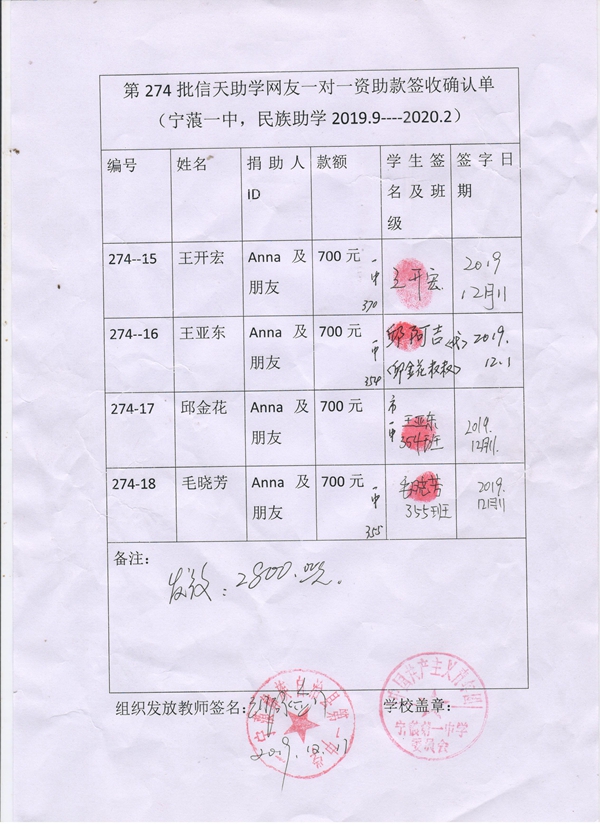 第 274 批信天助学网友一对一资助款签收确认单
（宁蒗一中，民族助学 2019.9----2020.2）
编号 姓名 捐助人ID 款额 学生签名及班级 签字日期
274--15 王开宏 Anna 及朋友 700 元 一中 370 王开宏 2019 12月11
274--16 王亚东 Anna 及朋友 700 元 一中 354 邱阿吉 (邱金花叔叔) 2019. 12.1
274-17 邱金花 Anna 及朋友 700 元 市一中 王亚东 354班 2019. 12月11.
274-18 毛晓芳 Anna 及朋友 700 元 一中 355 毛晓芳 355班 2019. 12月11
备注：
发放：2800.
组织发放教师签名：
2019.12.17
学校盖章：